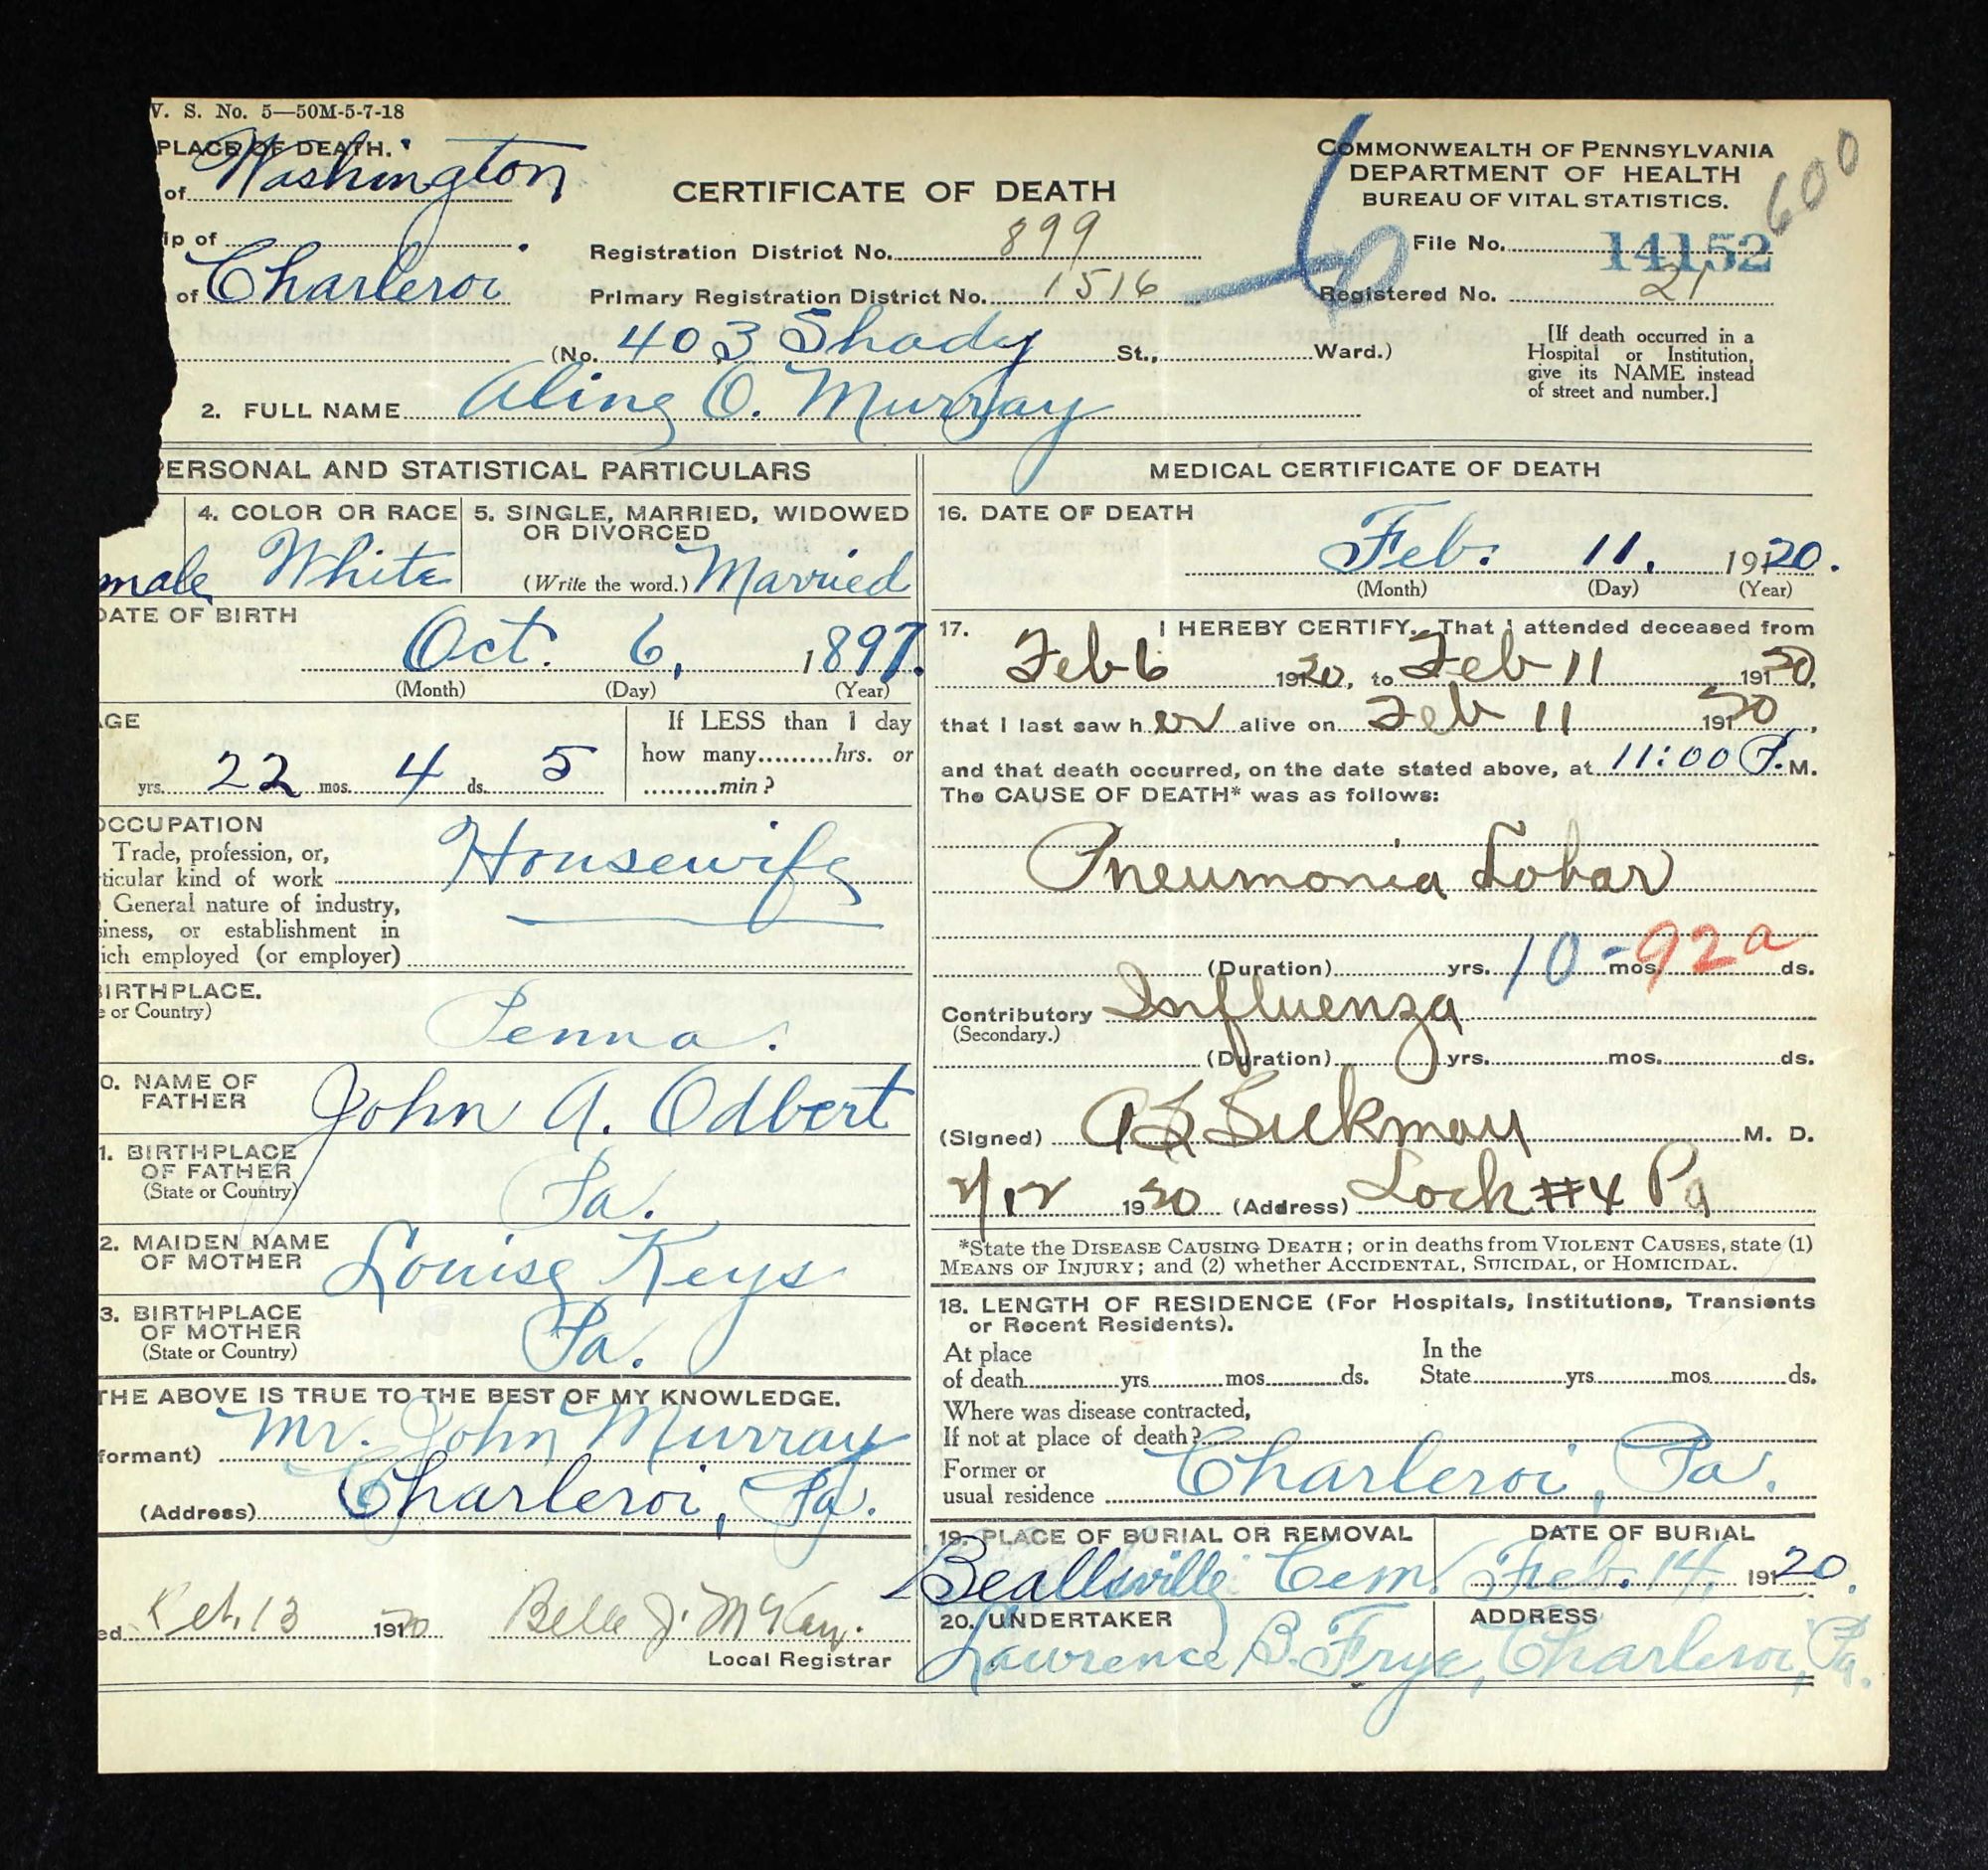 V. S. No. 5—50M-5-7-18
PLACE OF DEATH.
of Washington
CERTIFICATE OF DEATH
COMMONWEALTH OF PENNSYLVANIA
DEPARTMENT OF HEALTH
BUREAU OF VITAL STATISTICS.
600
ip of
Registration District No. 899
File No. 14152
of Charleroi
Primary Registration District No. 1516
Registered No. 21
(No. 403 Shady St., Ward.)
[If death occurred in a
Hospital or Institution,
give its NAME instead
of street and number.]
2. FULL NAME Aline O. Murray
PERSONAL AND STATISTICAL PARTICULARS
male
4. COLOR OR RACE
White
5. SINGLE, MARRIED, WIDOWED
OR DIVORCED
(Write the word.) Married
DATE OF BIRTH
Oct. 6, 1897.
(Month) (Day) (Year)
AGE
22 yrs. 4 mos. 5 ds.
If LESS than 1 day
how many.........hrs. or
.........min?
OCCUPATION
Trade, profession, or,
ticular kind of work Housewife
General nature of industry,
siness, or establishment in
ich employed (or employer)
BIRTHPLACE.
e or Country)
Penna.
0. NAME OF
FATHER
John A. Odbert
1. BIRTHPLACE
OF FATHER
(State or Country)
Pa.
2. MAIDEN NAME
OF MOTHER
Louise Keys
3. BIRTHPLACE
OF MOTHER
(State or Country)
Pa.
THE ABOVE IS TRUE TO THE BEST OF MY KNOWLEDGE.
formant) Mr. John Murray
(Address) Charleroi, Pa.
ed 13 1920 Belle J. McKay.
Local Registrar
MEDICAL CERTIFICATE OF DEATH
16. DATE OF DEATH
Feb. 11, 1920.
(Month) (Day) (Year)
17. I HEREBY CERTIFY, That I attended deceased from
Feb 6 1920, to Feb 11 1920,
that I last saw her alive on Feb 11 1920,
and that death occurred, on the date stated above, at 11:00 P.M.
The CAUSE OF DEATH* was as follows:
Pneumonia Lobar
10-92a
(Duration) yrs. mos. ds.
Contributory Influenza
(Secondary.)
(Duration) yrs. mos. ds.
(Signed) M. D.
2/12 1920 (Address) Lock #4 Pa
*State the DISEASE CAUSING DEATH; or in deaths from VIOLENT CAUSES, state (1)
MEANS OF INJURY; and (2) whether ACCIDENTAL, SUICIDAL, or HOMICIDAL.
18. LENGTH OF RESIDENCE (For Hospitals, Institutions, Transients
or Recent Residents).
At place
of death yrs mos ds.
In the
State yrs mos ds.
Where was disease contracted,
If not at place of death?
Former or
usual residence Charleroi, Pa.
19. PLACE OF BURIAL OR REMOVAL
Beallsville Cem.
DATE OF BURIAL
Feb. 14, 1920.
20. UNDERTAKER
Lawrence B. Frye,
ADDRESS
Charleroi, Pa.